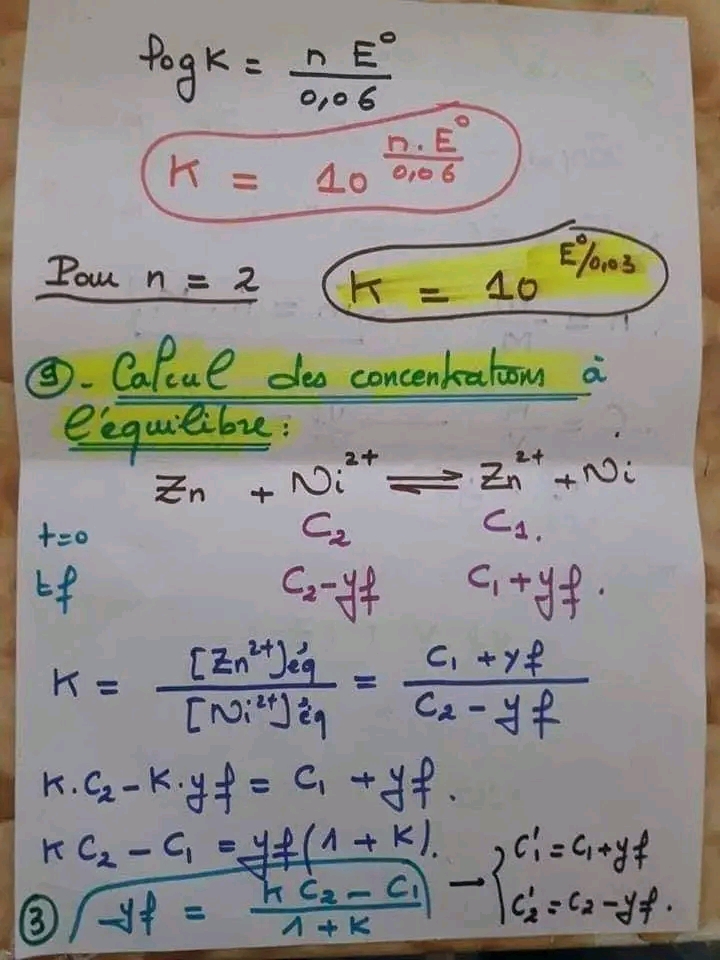 log K = n E° / 0,06
K = 10^(n.E° / 0,06)
Pour n = 2 K = 10^(E°/0,03)
9 - Calcul des concentrations à
l'équilibre :
Zn + Ni²⁺ ⇌ Zn²⁺ + Ni
t=0 C₂ C₁.
tf C₂-yf C₁+yf.
K = [Zn²⁺]éq / [Ni²⁺]éq = C₁ + yf / C₂ - yf
K.C₂ - K.yf = C₁ + yf.
K C₂ - C₁ = yf(1 + K).
3 yf = K C₂ - C₁ / 1 + K → { C'₁ = C₁ + yf
C'₂ = C₂ - yf.